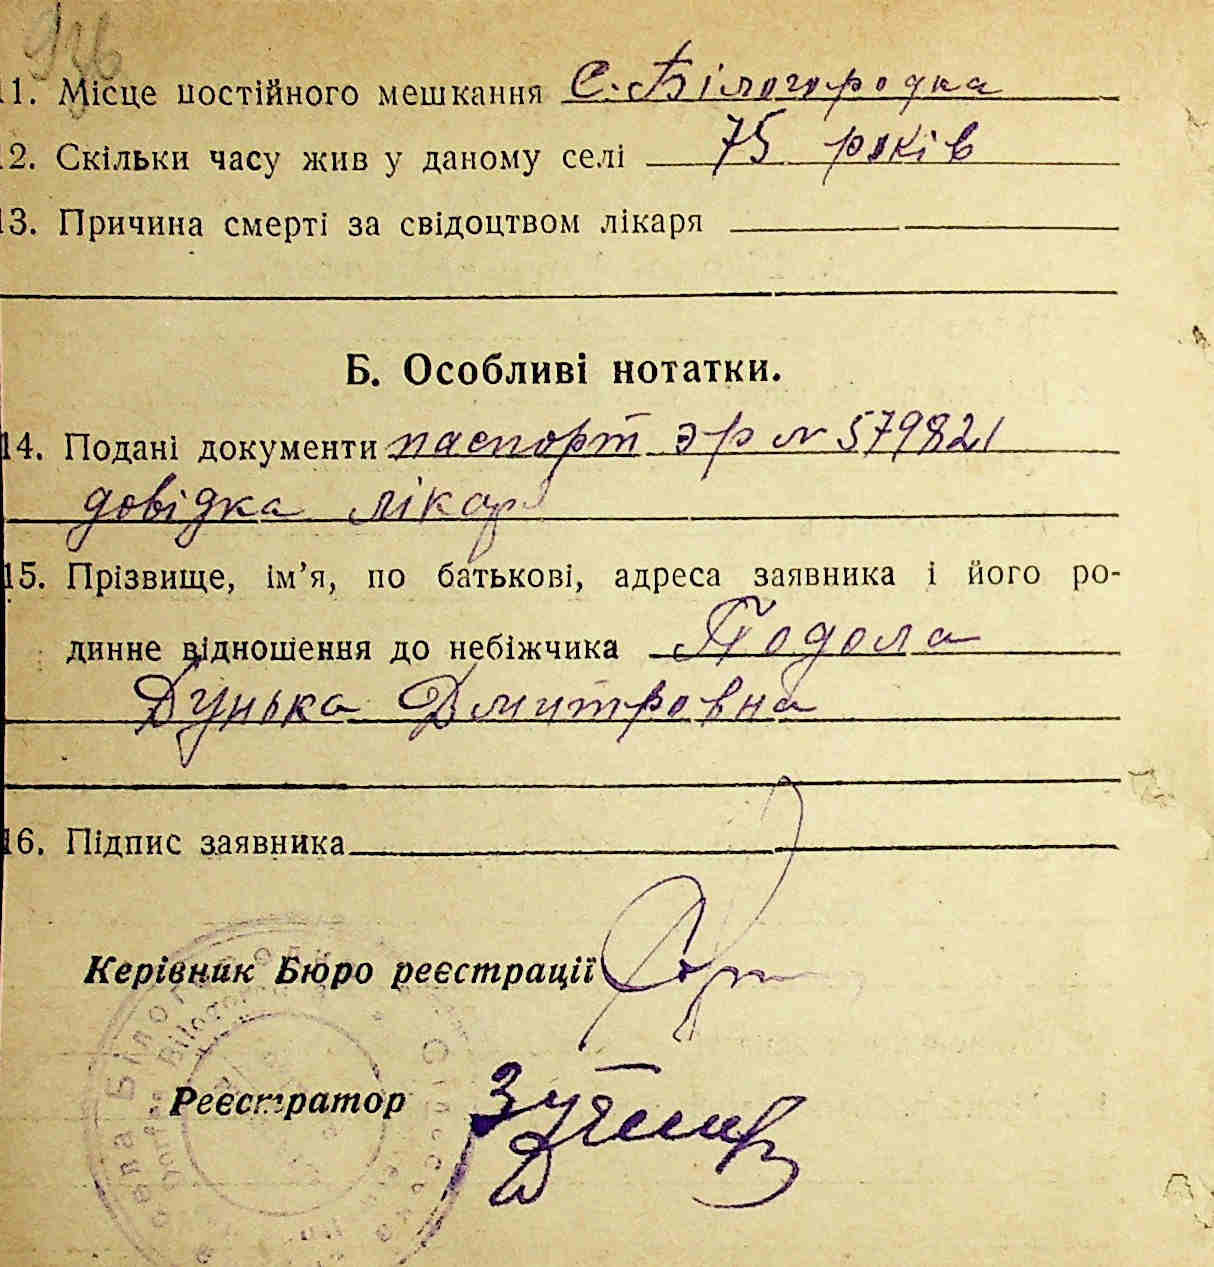 926
11. Місце постійного мешкання С. Білогородка
12. Скільки часу жив у даному селі 75 років
13. Причина смерті за свідоцтвом лікаря
Б. Особливі нотатки.
14. Подані документи паспорт эр № 579821
довідка лікар
15. Прізвище, ім’я, по батькові, адреса заявника і його ро-
динне відношення до небіжчика Подола
Дунька Дмитровна
16. Підпис заявника
Керівник Бюро реєстрації
Реєстратор